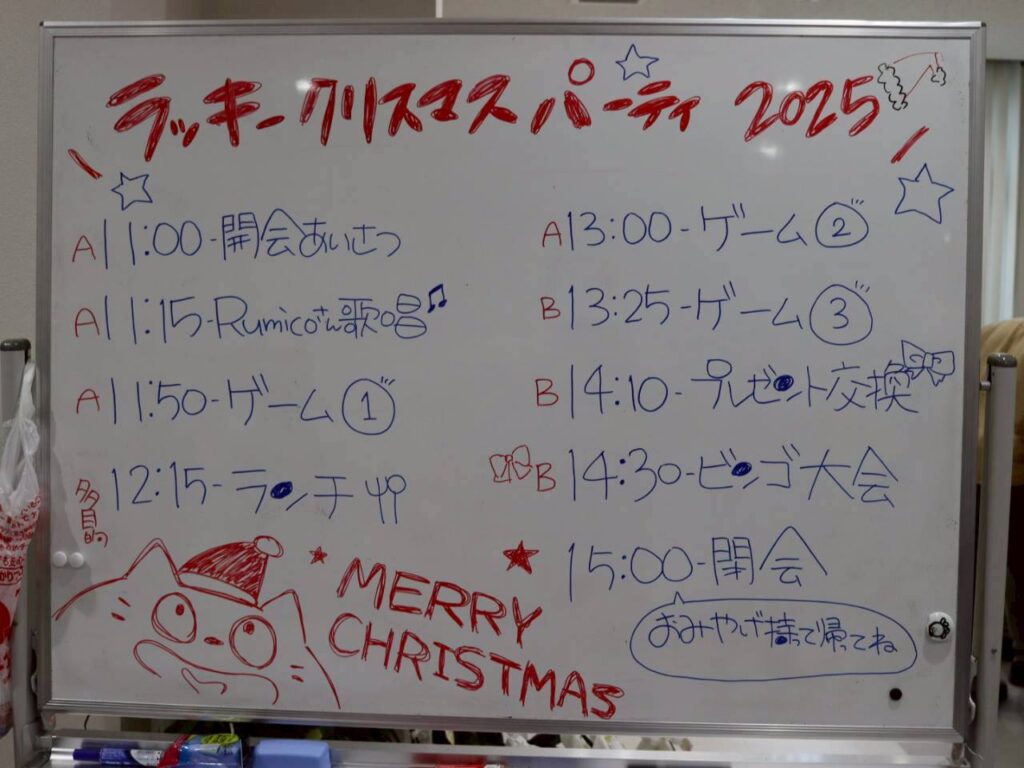 ラッキークリスマスパーティ 2025
A 11:00-開会あいさつ
A 11:15-Rumicoさん歌唱♫
A 11:50-ゲーム①
多目的 12:15-ランチ
A 13:00-ゲーム②
B 13:25-ゲーム③
B 14:10-プレゼント交換
B 14:30-ビンゴ大会
15:00-閉会
おみやげ持って帰ってね
MERRY
CHRISTMAS